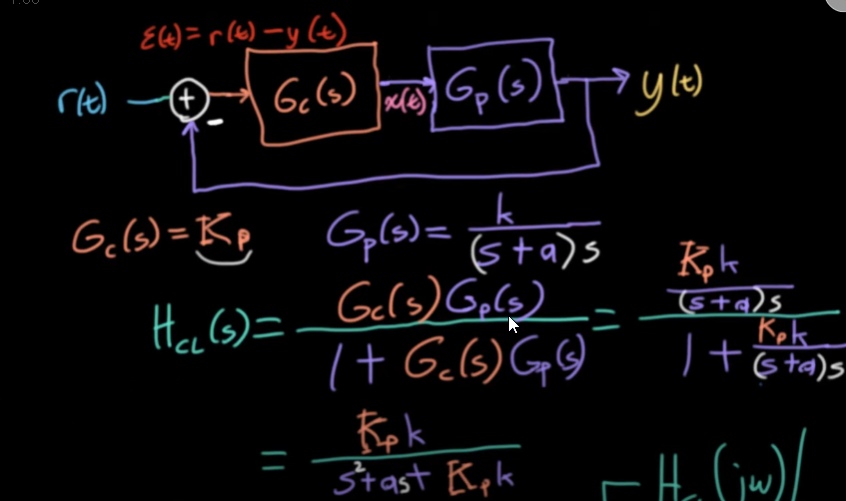 ε(t) = r(t) - y(t)
r(t) + - G_c(s) x(t) G_p(s) y(t)
G_c(s) = K_p G_p(s) = k / (s + a)s
H_CL(s) = G_c(s) G_p(s) / 1 + G_c(s) G_p(s) = K_p k / (s + a)s / 1 + K_p k / (s + a)s
= K_p k / s² + as + K_p k
H_CL (jω)